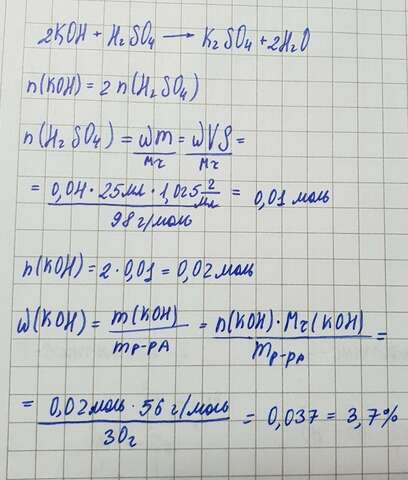 2KOH + H₂SO₄ → K₂SO₄ + 2H₂O
n(KOH) = 2 n(H₂SO₄)
n(H₂SO₄) = ωm/Mr = ωVρ/Mr =
= 0,04 · 25мл · 1,025 г/мл / 98 г/моль = 0,01 моль
n(KOH) = 2 · 0,01 = 0,02 моль
ω(KOH) = m(KOH)/mр-ра = n(KOH) · Mr(KOH)/mр-ра =
= 0,02 моль · 56 г/моль / 30г = 0,037 = 3,7%